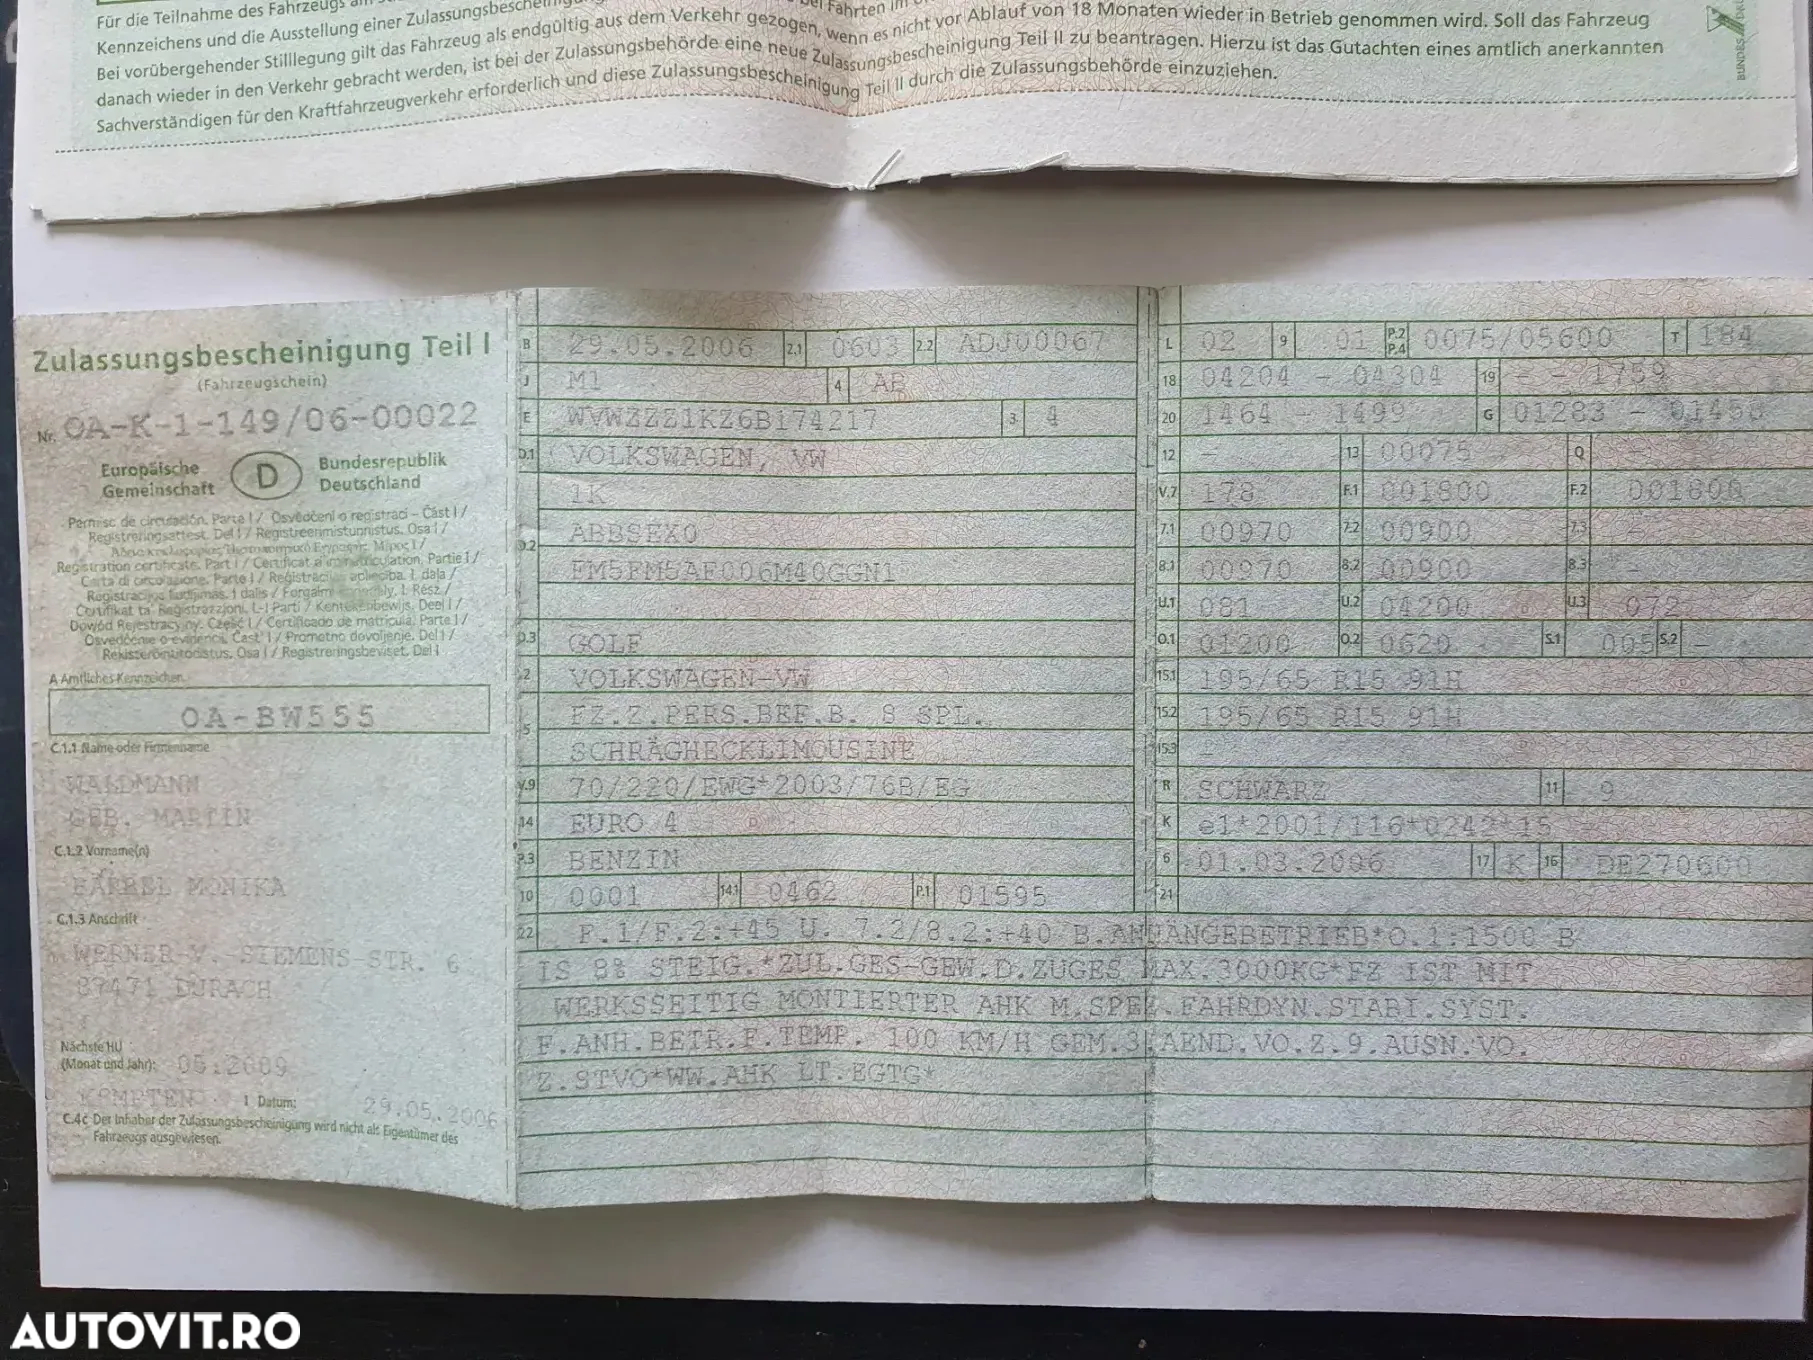 Für die Teilnahme des Fahrzeugs am
Fahrten im
Kennzeichens und die Ausstellung einer Zulassungsbescheinigung
Bei vorübergehender Stilllegung gilt das Fahrzeug als endgültig aus dem Verkehr gezogen, wenn es nicht vor Ablauf von 18 Monaten wieder in Betrieb genommen wird. Soll das Fahrzeug
danach wieder in den Verkehr gebracht werden, ist bei der Zulassungsbehörde eine neue Zulassungsbescheinigung Teil II zu beantragen. Hierzu ist das Gutachten eines amtlich anerkannten
Sachverständigen für den Kraftfahrzeugverkehr erforderlich und diese Zulassungsbescheinigung Teil II durch die Zulassungsbehörde einzuziehen.
Zulassungsbescheinigung Teil I
(Fahrzeugschein)
Nr. OA-K-1-149/06-00022
Europäische Gemeinschaft
D
Bundesrepublik Deutschland
Permiso de circulación. Parte I / Osvědčení o registraci - Část I /
Registreringsattest. Del I / Registreerimistunnistus. Osa I /
Registration certificate. Part I / Certificat d'immatriculation. Partie I /
Carta di circolazione. Parte I / Reģistrācijas apliecība. I. daļa /
Registracijos liudijimas. I dalis / Forgalmi engedély. I. Rész /
Ċertifikat ta' Reġistrazzjoni. L-I Parti / Kentekenbewijs. Deel I /
Dowód Rejestracyjny. Część I / Certificado de matrícula. Parte I /
Osvedčenie o evidencii. Časť I / Prometno dovoljenje. Del I /
Rekisteröintitodistus. Osa I / Registreringsbeviset. Del I
A Amtliches Kennzeichen
OA-BW555
C.1.1 Name oder Firmenname
WALDMANN
GEB. MARTIN
C.1.2 Vorname(n)
BÄRBEL MONIKA
C.1.3 Anschrift
WERNER-V.-SIEMENS-STR. 6
87471 DURACH
Nächste HU
(Monat und Jahr): 05.2009
KEMPTEN I Datum: 29.05.2006
C.4c Der Inhaber der Zulassungsbescheinigung wird nicht als Eigentümer des
Fahrzeugs ausgewiesen.
B 29.05.2006 2.1 0603 2.2 ADJ00067
J M1 4 AB
E WVWZZZ1KZ6B174217 3 4
D.1 VOLKSWAGEN, VW
1K
D.2 ABBSEX0
FM5FM5AF006M40GGN1
D.3 GOLF
2 VOLKSWAGEN-VW
5 FZ.Z.PERS.BEF.B. 8 SPL.
SCHRÄGHECKLIMOUSINE
V.9 70/220/EWG*2003/76B/EG
14 EURO 4
P.3 BENZIN
10 0001 14.1 0462 P.1 01595
L 02 9 01 P.2 P.4 0075/05600 T 184
18 04204 - 04304 19 - - 1759
20 1464 - 1499 G 01283 - 01450
12 - 13 00075 Q -
V.7 178 F.1 001800 F.2 001800
7.1 00970 7.2 00900 7.3 -
8.1 00970 8.2 00900 8.3 -
U.1 081 U.2 04200 U.3 072
O.1 01200 O.2 0620 S.1 005 S.2 -
15.1 195/65 R15 91H
15.2 195/65 R15 91H
15.3 -
R SCHWARZ 11 9
K e1*2001/116*0242*15
6 01.03.2006 17 K 16 DE270600
21
22 F.1/F.2:+45 U. 7.2/8.2:+40 B.ANHÄNGEBETRIEB*O.1:1500 B
IS 8% STEIG.*ZUL.GES-GEW.D.ZUGES MAX.3000KG*FZ IST MIT
WERKSSEITIG MONTIERTER AHK M.SPEZ.FAHRDYN.STABI.SYST.
F.ANH.BETR.F.TEMP. 100 KM/H GEM.3.AEND.VO.Z.9.AUSN.VO.
Z.STVO*WW.AHK LT.EGTG*
AUTOVIT.RO